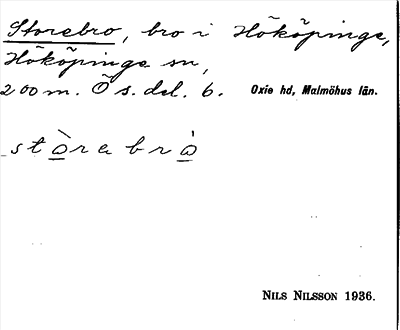 Storebro, bro i Hököpinge,
Hököpinge sn,
200 m. Ö s. del. 6. Oxie hd, Malmöhus län.
stò̲rebrò̲
NILS NILSSON 1936.